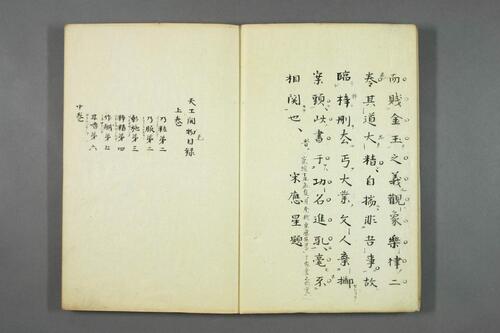 而賤金玉之義觀象樂律二
卷其道太精自揣非吾事故
臨梓刪去丐大業文人棄擲
案頭此書于功名進取毫不
相関也
宋應星題
天工開物目録
上巻
乃粒第一
乃服第二
彰施第三
粹精第四
作鹹第五
甘嗜第六
中巻